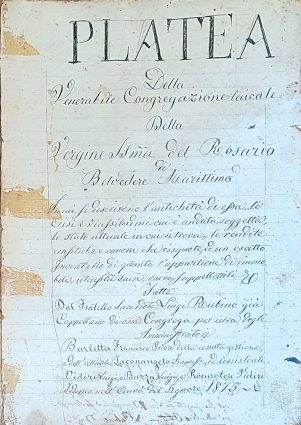 PLATEA
Della
Venerabile Congregazione laicale
Della
Vergine SSma del Rosario
di
Belvedere Marittimo
In cui si descrivono l'antichità di essa, le
crisi e vicissitudini cui è andata soggetta
lo stato attuale in cui si trova, le rendite
enfitiche e canoni che riscuote, ed un esatto
inventario di quanto l'appartiene di immo
bili, utensili sacri, sacre suppellettili &
Fatta
Dal Fratello Sacerdote Luigi Roubino già
Cappellano di essa Congrega per cura degli
Amministratori
Barletta Francesco Priore della cessata gestione,
Assistente
Luigi e Procuratore
del Signore 1875